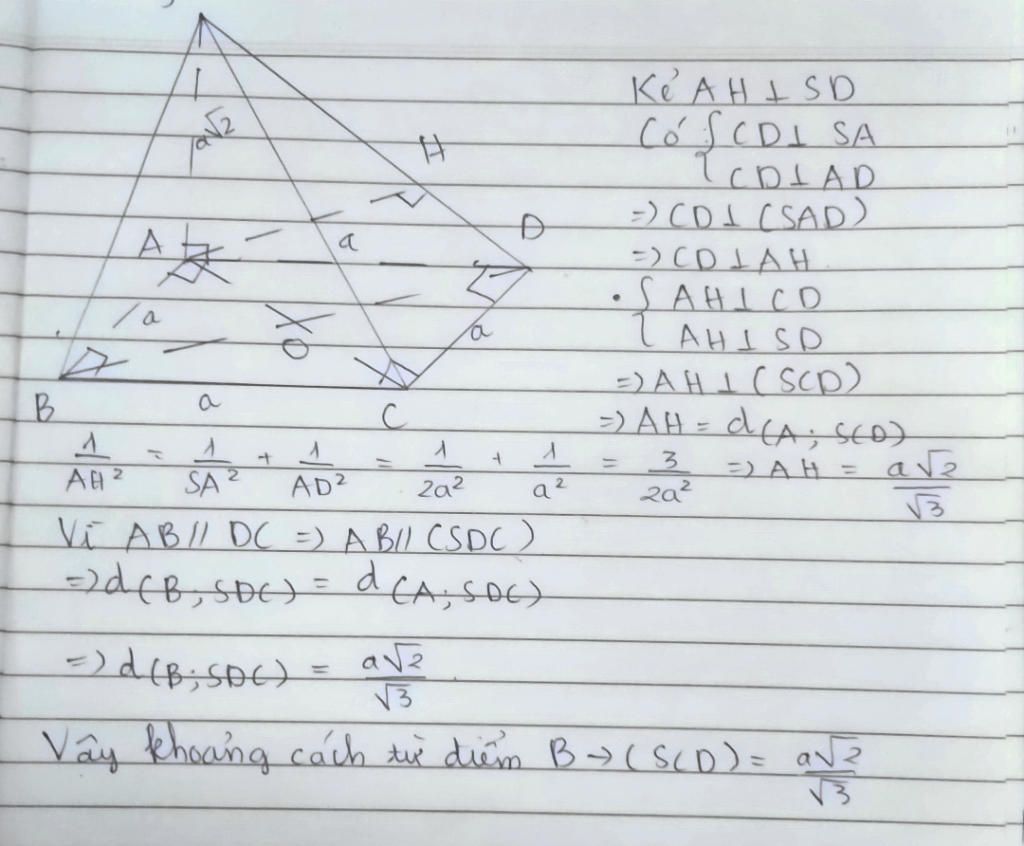 a√2
H
A
a
D
a
O
a
B
a
C
Kẻ AH ⊥ SD
Có { CD ⊥ SA
CD ⊥ AD
=> CD ⊥ (SAD)
=> CD ⊥ AH
• { AH ⊥ CD
AH ⊥ SD
=> AH ⊥ (SCD)
=> AH = d(A; SCD)
1/AH² = 1/SA² + 1/AD² = 1/2a² + 1/a² = 3/2a² => AH = a√2/√3
Vì AB // DC => AB // (SDC)
=> d(B; SDC) = d(A; SDC)
=> d(B; SDC) = a√2/√3
Vậy khoảng cách từ điểm B → (SCD) = a√2/√3